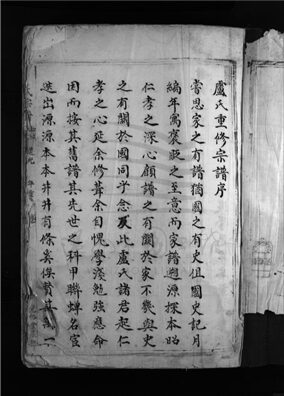 盧氏重修宗譜序
嘗思家之有譜猶國之有史但國史記月
編年寓褒貶之至意而家譜遡源探本昭
仁孝之深心顧譜之有關於家不幾與史
之有關於國同乎念及此盧氏諸君起仁
孝之心延余修葺余自愧學淺勉強應命
因而按其舊譜其先世之科甲聯蟬名宦
迭出源源本本井井有條奚俟贊其萬一